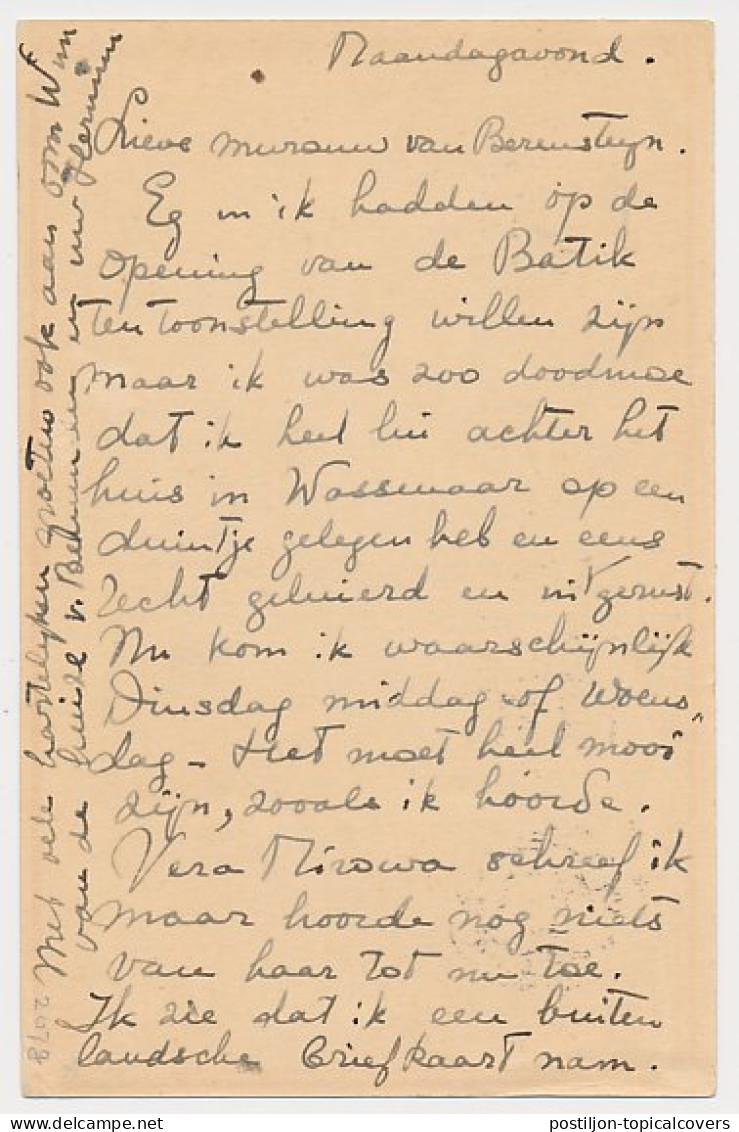 Maandagavond.
Lieve mevrouw van Berensteyn.
Eg en ik hadden op de
opening van de Batik
tentoonstelling willen zijn
maar ik was zoo doodmoe
dat ik heel lui achter het
huis in Wassenaar op een
duintje gelegen heb en eens
recht geluierd en uitgerust.
Nu kom ik waarschijnlijk
Dinsdag middag of Woens
dag - Het moet heel mooi
zijn, zooals ik hoorde.
Vera Mirowa schreef ik
maar hoorde nog niets
van haar tot nu toe.
Ik zie dat ik een buiten
landsche briefkaart nam.
Met vele hartelijke groeten ook aan oom Wim
van de huize v. en uw
2978
postiljon-topicalcovers